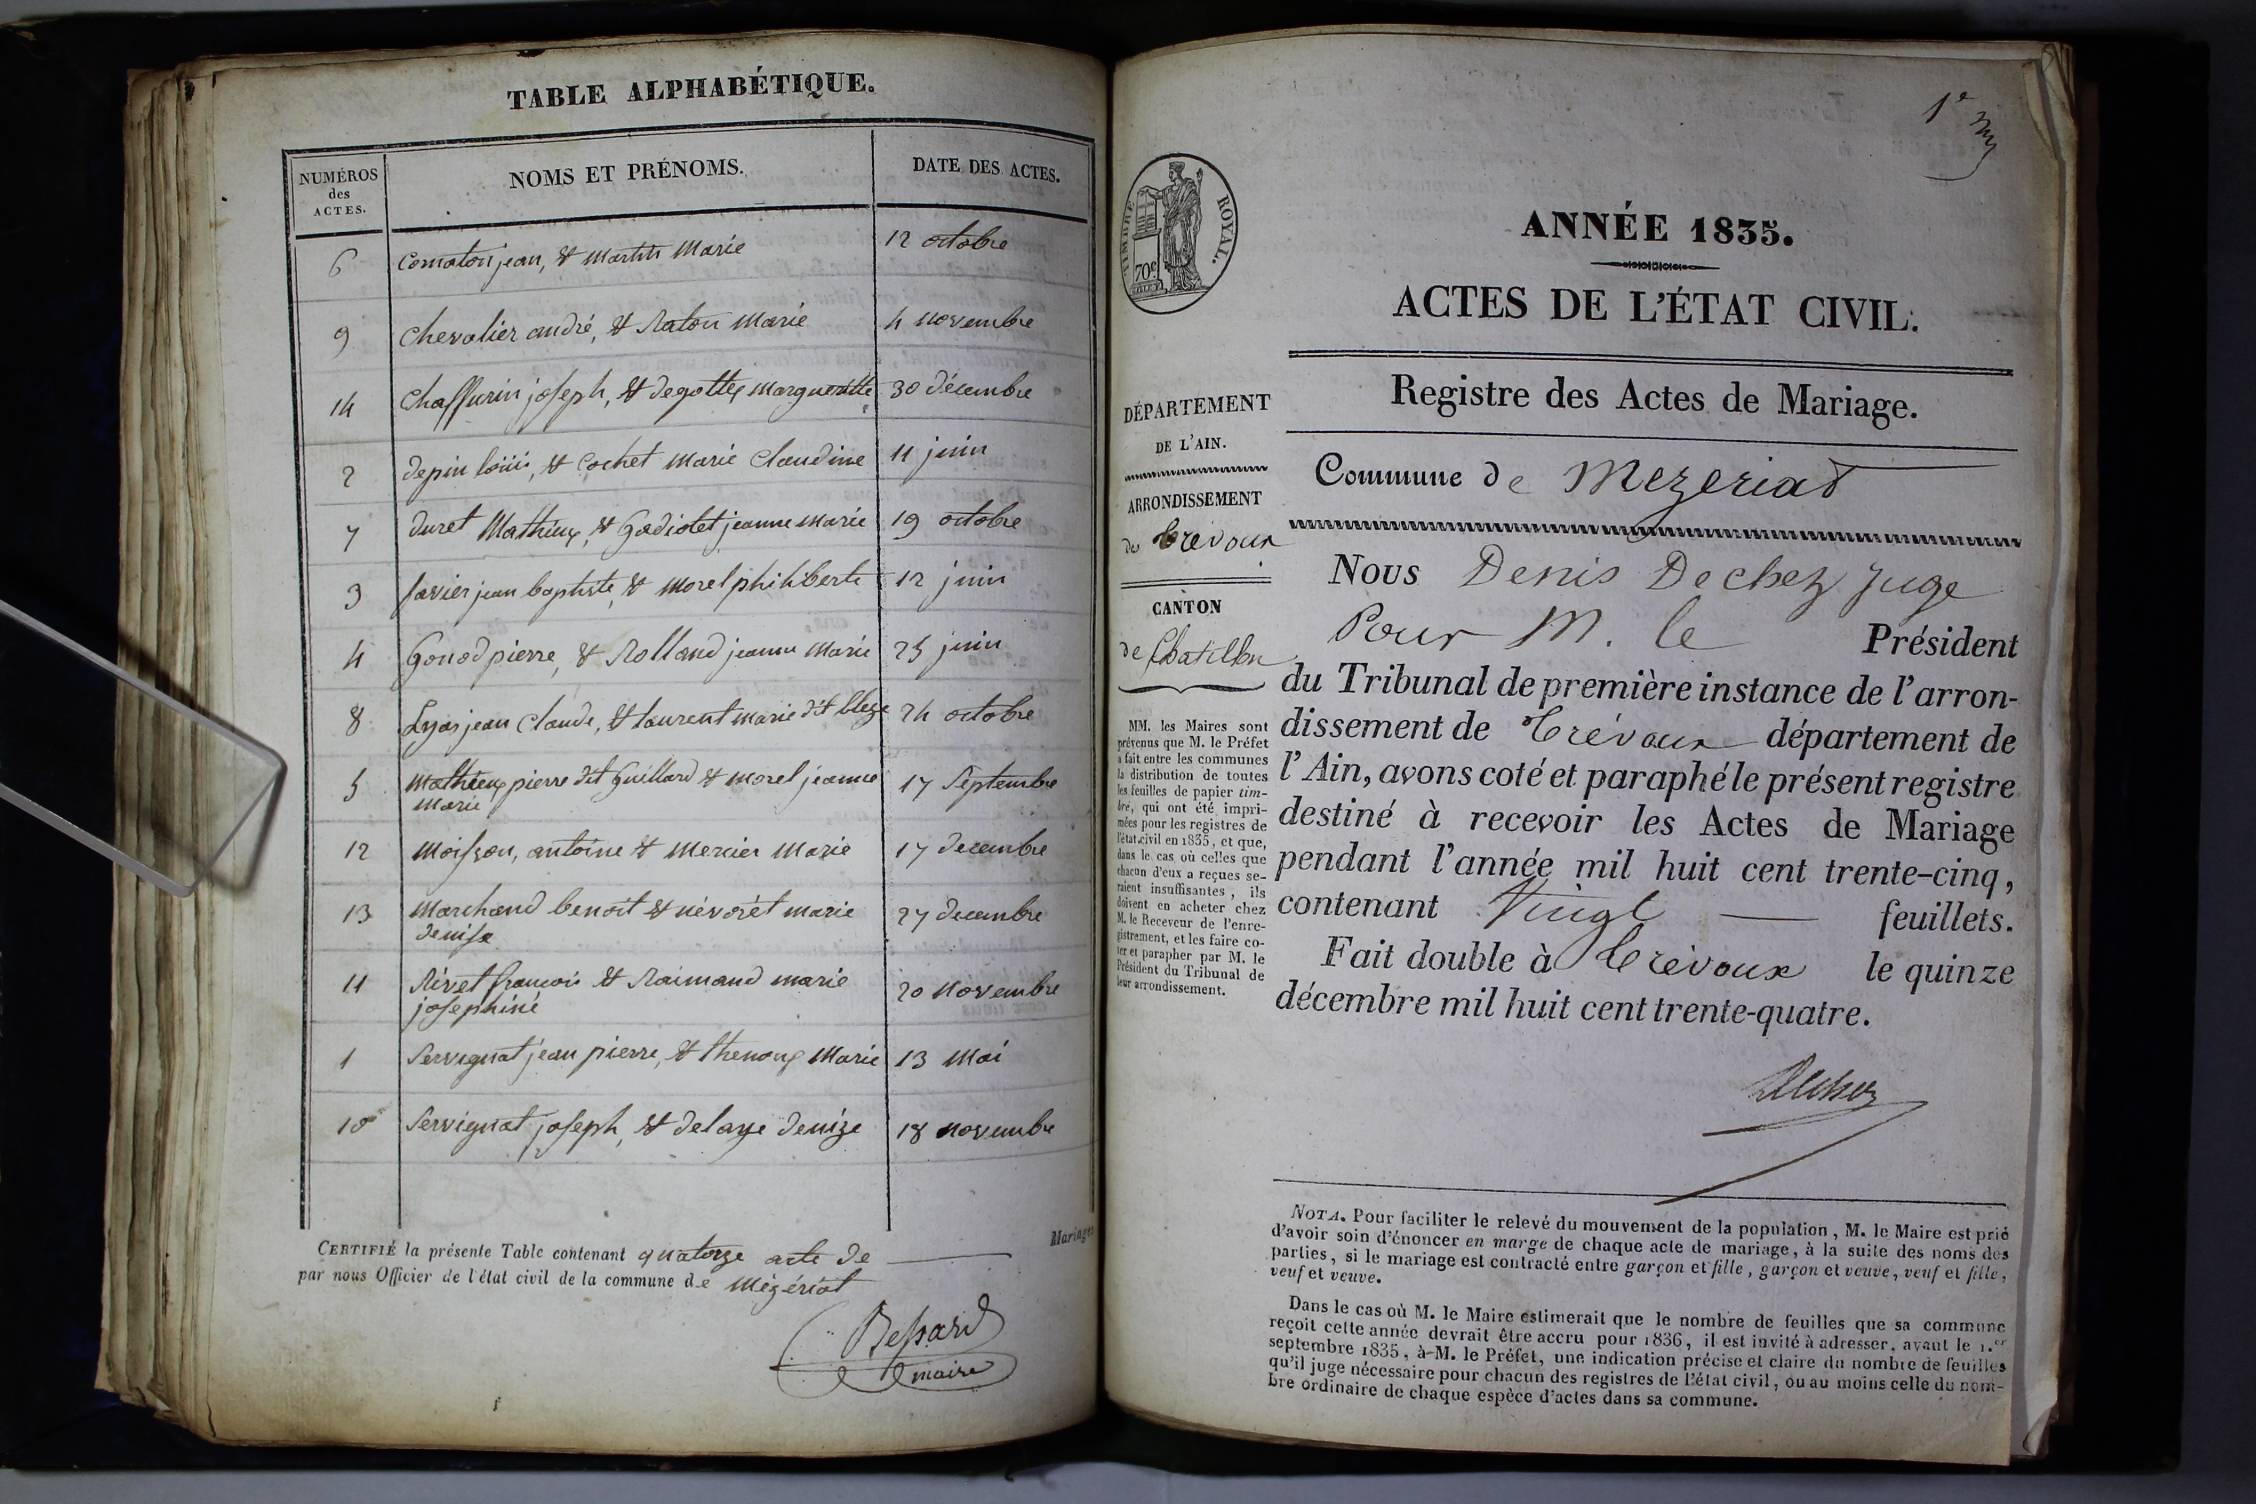 TABLE ALPHABÉTIQUE.
NUMÉROS
des
ACTES.
NOMS ET PRÉNOMS.
DATE DES ACTES.
6 Comaton jean, & martin Marie 12 octobre
9 Chevalier andré, & Raton Marie 4 novembre
14 Chaffurin joseph, & degottex margueritte 30 décembre
2 depin loüis, & Cochet Marie Claudine 11 juin
7 duret Mathieux, & Gadiolet jeanne Marie 19 octobre
3 favier jean baptiste, & Morel philiberte 12 juin
4 Gonod pierre, & Rolland jeanne Marie 25 juin
8 Lyas jean Claude, & laurent marie dit 24 octobre
5 Mathieux pierre dit Guillard & morel jeanne 17 Septembre
marie
12 Moisson, antoine & Mercier Marie 17 decembre
13 Marchand benoit & névoret marie 27 decembre
denise
11 Rivet françois & Raimand marie 20 novembre
josephine
1 Servignat jean pierre, & thenoux Marie 13 Mai
10 Servignat joseph, & delaye denize 18 novembre
Mariages
CERTIFIÉ la présente Table contenant quatorze acte de
par nous Officier de l'état civil de la commune de Mézériat
Bessard
maire
1e
TIMBRE ROYAL.
70c
ANNÉE 1835.
ACTES DE L'ÉTAT CIVIL.
Registre des Actes de Mariage.
Commune de Mezeriat
DÉPARTEMENT
DE L'AIN.
ARRONDISSEMENT
de Trévoux
CANTON
de Chatillon
MM. les Maires sont
prévenus que M. le Préfet
a fait entre les communes
la distribution de toutes
les feuilles de papier tim-
bré, qui ont été impri-
mées pour les registres de
l'état civil en 1835, et que,
dans le cas où celles que
chacun d'eux a reçues se-
raient insuffisantes, ils
doivent en acheter chez
M. le Receveur de l'enre-
gistrement, et les faire co-
ter et parapher par M. le
Président du Tribunal de
leur arrondissement.
Nous Denis Dechez Juge
Pour M. le Président
du Tribunal de première instance de l'arron-
dissement de Trévoux département de
l'Ain, avons coté et paraphé le présent registre
destiné à recevoir les Actes de Mariage
pendant l'année mil huit cent trente-cinq,
contenant Vingt feuillets.
Fait double à Trévoux le quinze
décembre mil huit cent trente-quatre.
Dechez
NOTA. Pour faciliter le relevé du mouvement de la population, M. le Maire est prié
d'avoir soin d'énoncer en marge de chaque acte de mariage, à la suite des noms des
parties, si le mariage est contracté entre garçon et fille, garçon et veuve, veuf et fille,
veuf et veuve.
Dans le cas où M. le Maire estimerait que le nombre de feuilles que sa commune
reçoit cette année devrait être accru pour 1836, il est invité à adresser, avant le 1.er
septembre 1835, à M. le Préfet, une indication précise et claire du nombre de feuilles
qu'il juge nécessaire pour chacun des registres de l'état civil, ou au moins celle du nom-
bre ordinaire de chaque espèce d'actes dans sa commune.